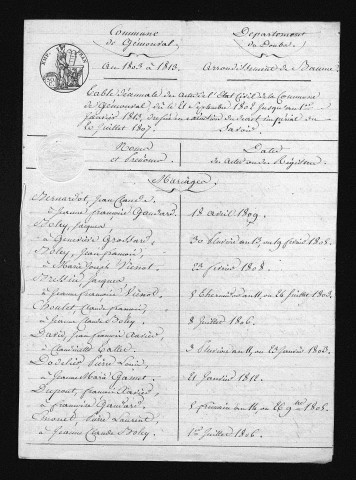 Commune
de Gémonval
Département
du Doubs.
An 1803 à 1813.
Arrondissement de Baume
Table décennale des Actes de l'Etat Civil de la Commune
de Gémonval du 21 Septembre 1802 jusqu'au 1er
janvier 1813, en exécution du décret impérial du
20 juillet 1807.
Savoir
Noms
et Prénoms
Date
des Actes ou du Registre
Mariages
Bernardot, Jean Claude
à Jeanne françoise Gaudard. 18 avril 1809.
Boley, Jacques
à Geneviève Grossard. 30 Pluviôse an 13, ou 19 février 1805.
Boley, Jean françois,
à Marie Joseph Vienot. 23 février 1808.
Jacques
à Jeanne françoise Vienot. 8 Thermidor an 11, ou 26 juillet 1803.
Choulet, Claude françois,
à Jeanne Claude Boley. 8 juillet 1806.
David, Jean françois Xavier,
à Claudinette 3 Pluviôse an 11, ou 23 janvier 1803.
Pierre Louis,
à Jeanne Marie 21 janvier 1812.
Dupont, françois Xavier
à françoise Gaudard. 8 frimaire an 14 ou 29 9bre 1805.
Pierre Laurent,
à Jeanne Claude Boley. 1er juillet 1806.